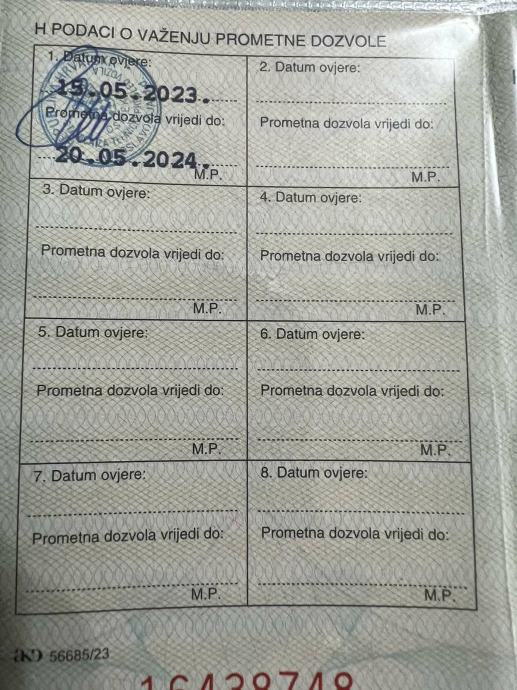 H PODACI O VAŽENJU PROMETNE DOZVOLE
1. Datum ovjere:
15.05.2023.
Prometna dozvola vrijedi do:
20.05.2024.
M.P.
2. Datum ovjere:
Prometna dozvola vrijedi do:
M.P.
3. Datum ovjere:
Prometna dozvola vrijedi do:
M.P.
4. Datum ovjere:
Prometna dozvola vrijedi do:
M.P.
5. Datum ovjere:
Prometna dozvola vrijedi do:
M.P.
6. Datum ovjere:
Prometna dozvola vrijedi do:
M.P.
7. Datum ovjere:
Prometna dozvola vrijedi do:
M.P.
8. Datum ovjere:
Prometna dozvola vrijedi do:
M.P.
AKD 56685/23
16438748